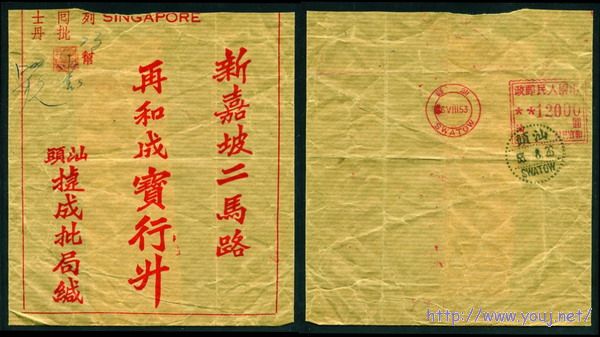 SINGAPORE
列
幇
回批
新嘉坡二馬路
再和成寶行升
汕頭
捷成批局緘
VIII53
SWATOW
政郵民人
**12000
圓
汕頭
SWATOW
http://www.youj.net/